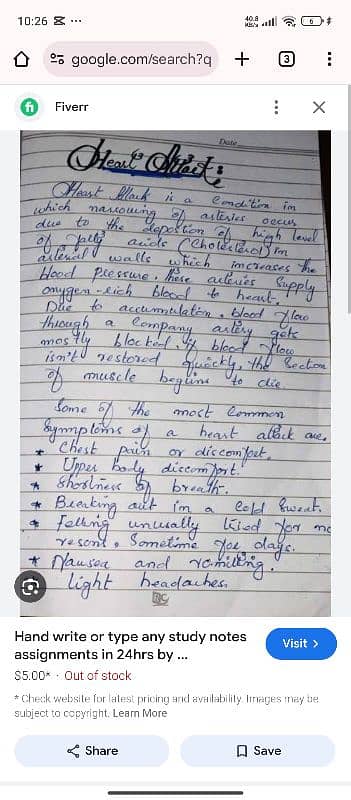 10:26
40.8
KB/s
6
google.com/search?q
3
Fiverr
Date
Heart Attack:
Heart Attack is a Condition in
which narrowing of arteries occur
due to the deposition of high level
of fatty acids (Cholesterol) in
arterial walls which increases the
blood Pressure, these arteries Supply
oxygen-rich blood to heart.
Due to accumulation, blood flow
through a Company artery gets
mostly blocked, if blood flow
isn't restored quickly, the Section
of muscle begins to die.
Some of the most Common
Symptoms of a heart attack are.
* Chest pain or discomfort.
* Upper body discomfort.
* Shortness of breath.
* Breaking out in a Cold Sweat.
* felling unusually tired for no
resons, Sometime for days.
* Nausea and vomiting.
light headaches.
Hand write or type any study notes
assignments in 24hrs by ...
Visit >
$5.00* · Out of stock
* Check website for latest pricing and availability. Images may be
subject to copyright. Learn More
Share
Save